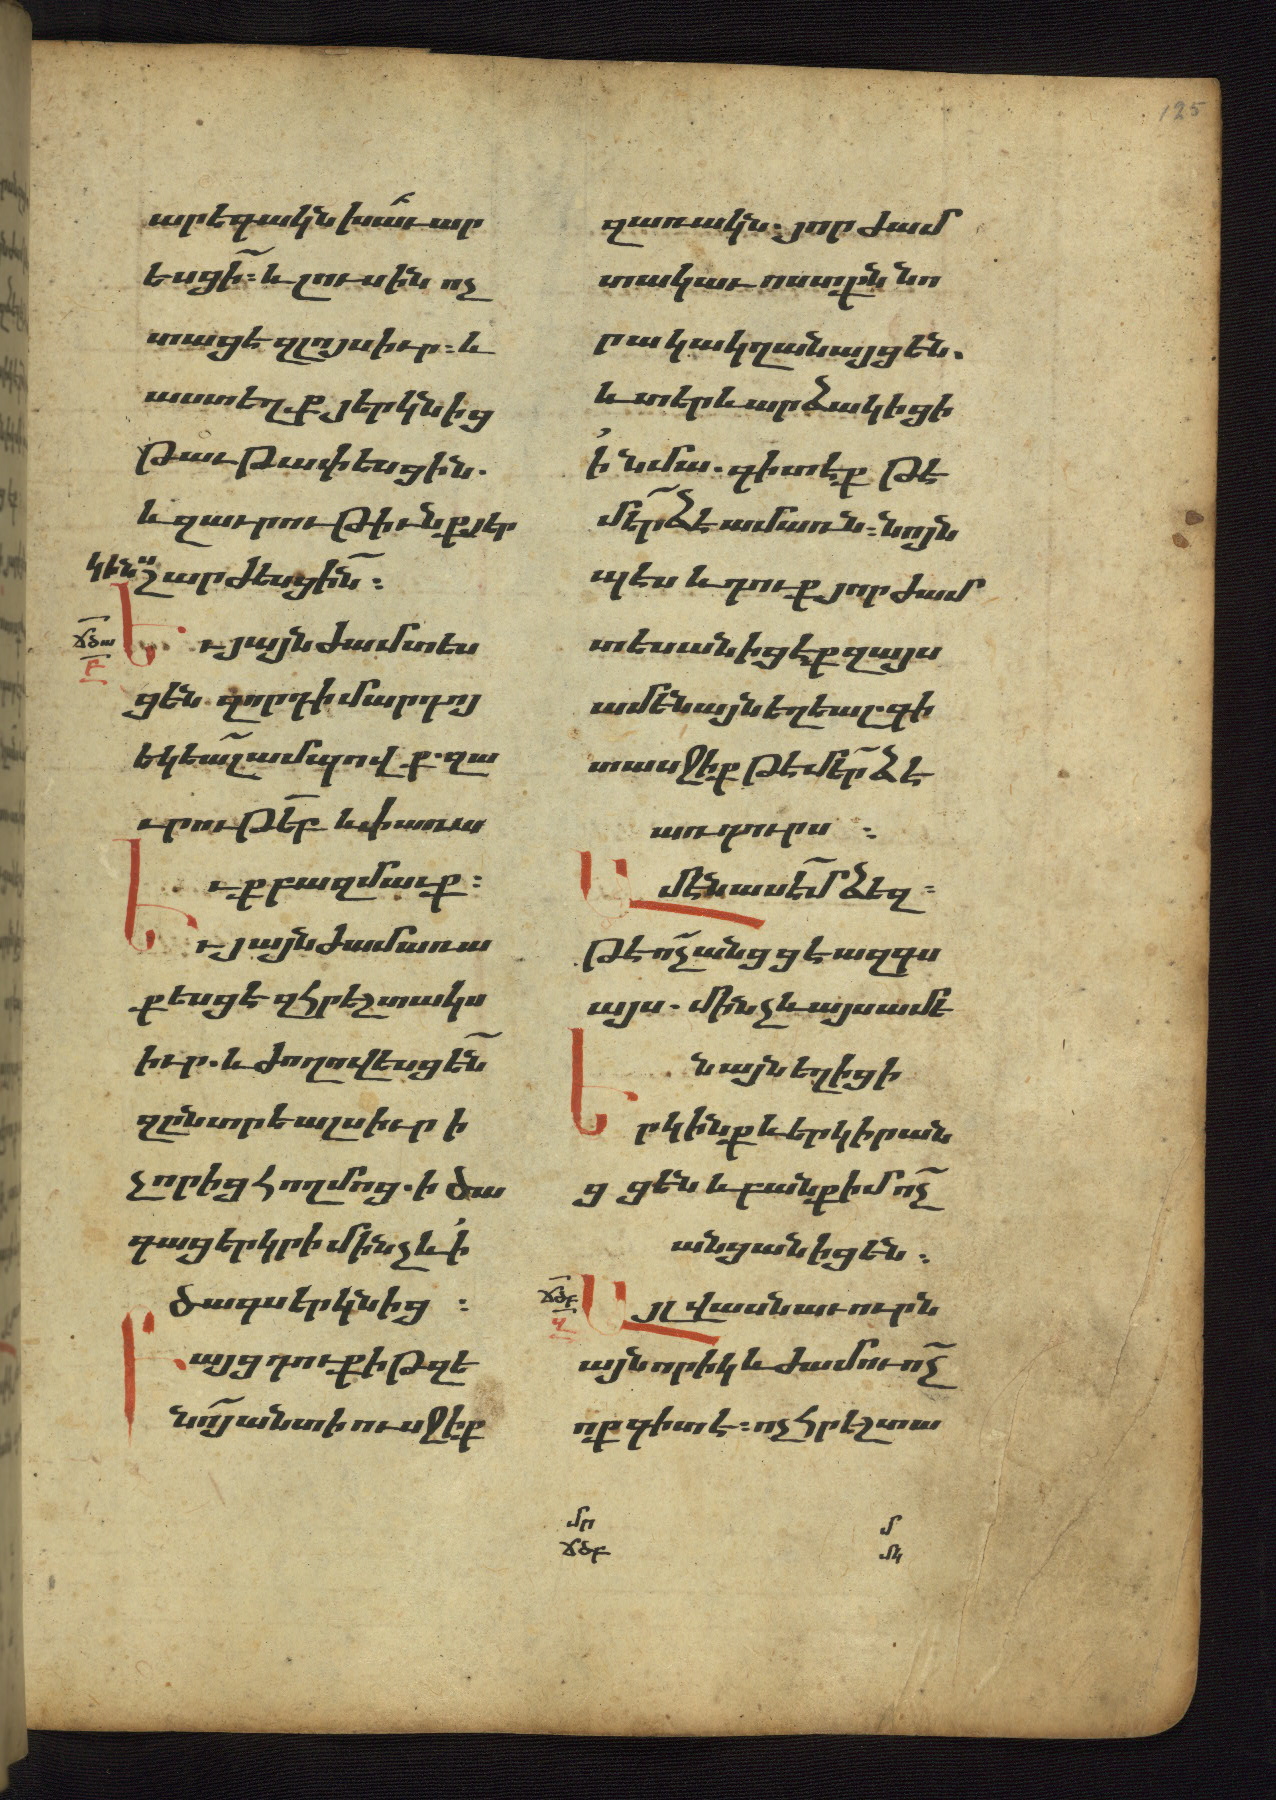 125
արեգակն խաւար
եսցի։ և լուսին ոչ
տացէ զլոյս իւր։ և
աստեղք յերկնից
թաւթափեսցին.
և զաւրութիւնք յեր
կինս շարժեսցին։
ճծա
բ
Եւ յայնժամ տես
ցեն զորդի մարդոյ
եկեալ ամպովք. զա
ւրութեբ և փառա
ւք բազմաւք։
Եւ յայնժամ առա
քեսցէ զհրեշտակս
իւր. և ժողովեսցեն
զընտրեալս իւր ի
չորից հողմոց. ի ծա
գաց երկրի մինչև ի
ծագս երկնից։
Բայց դուք ի թզե
նոյ անտի ուսջիք
զառակն. յորժամ
տակաւ ոստքն նո
րա կակղանայցեն.
և տերև արձակիցի
ի նմա. գիտէք թէ
մերձ է ամառն։ նոյն
պէս և դուք յորժամ
տեսանիցէք զայս
ամենայն եղեալ. գի
տասջիք թէ մերձ է
առ դուրս։
Ամէն ասեմ ձեզ։
թէ ոչ անցցէ ազգս
այս. մինչև այս ամե
նայն եղիցի
Երկինք և երկիր ան
ցցեն և բանք իմ ոչ
անցանիցեն։
ճծբ
զ
Այլ վասն աւուրն
այնորիկ և ժամու ոչ
ոք գիտէ։ ոչ հրեշտա
մր
ճծբ
մ
մկ